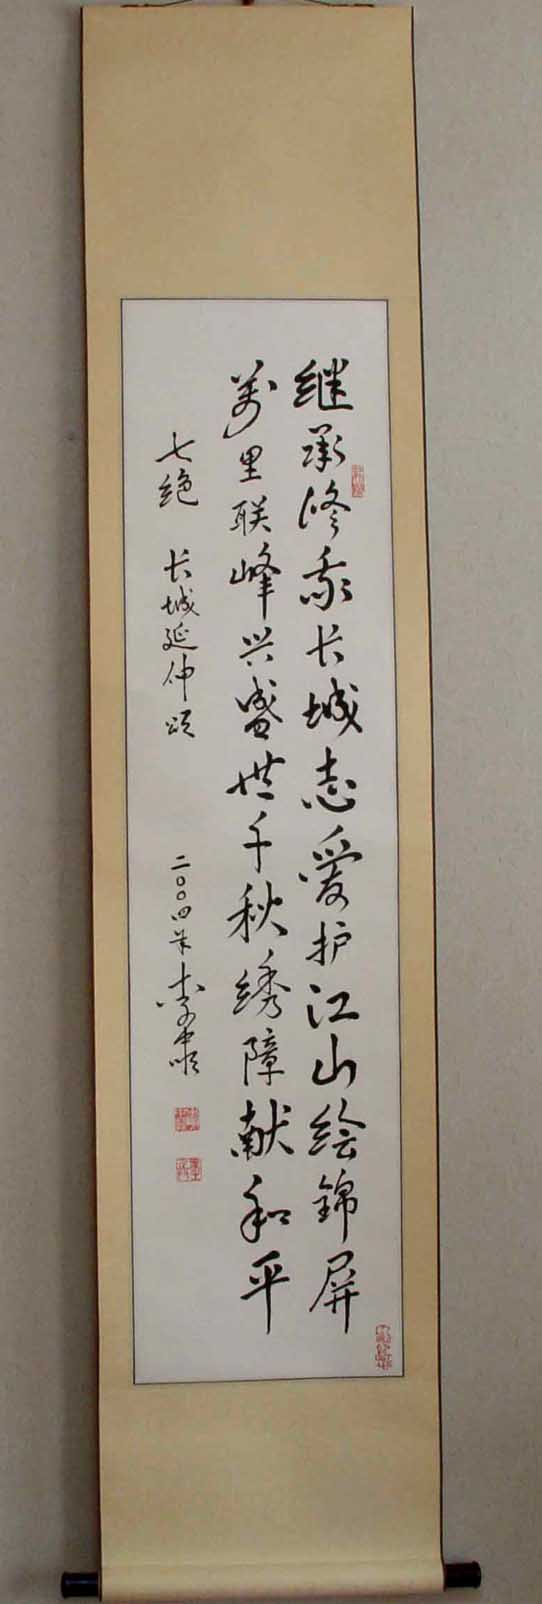 继承修我长城志爱护江山绘錦屏
萬里联峰兴盛世千秋绣障献和平
七绝 长城延伸颂 二〇〇四年 李